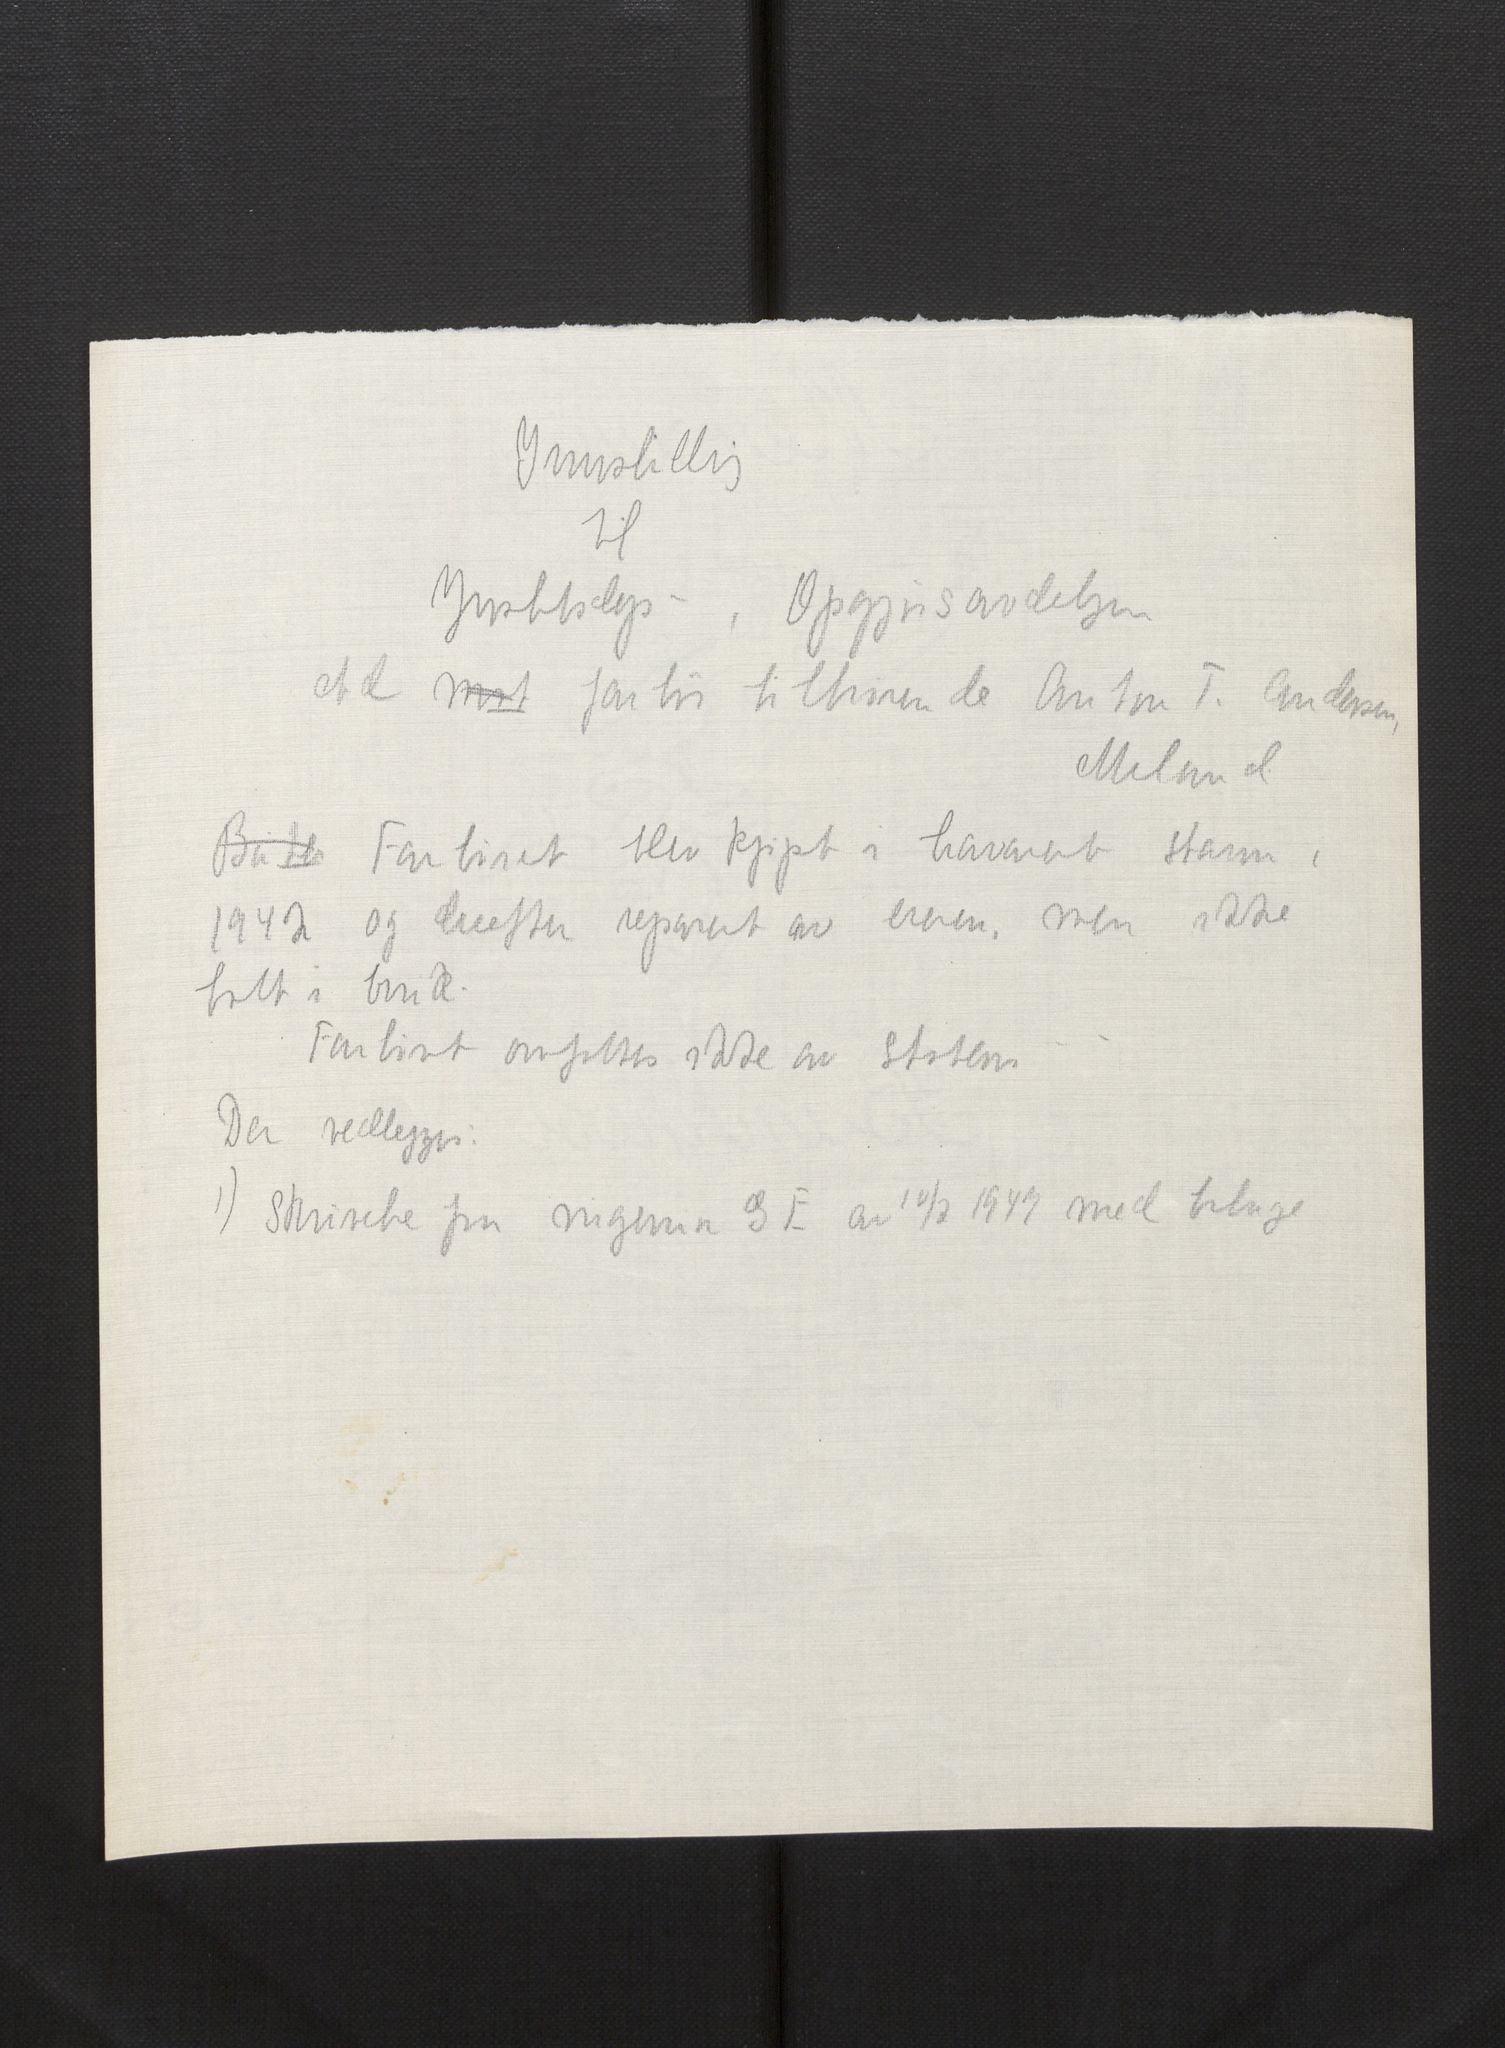 Innstilling
til
Justitsdep - , Opgjørsavdelingen
Ad mot fartøi tilhørende Anton T. Andersen,
Meland
Fartøiet blev kjøpt i havarert stann i
1942 og derefter reparert av eieren, men ikke
satt i bruk.
Fartøiet omfattes ikke av Statens
Der vedlegges:
1) Skrivelse fra ingeniør S E av 10/2 1949 med bilage